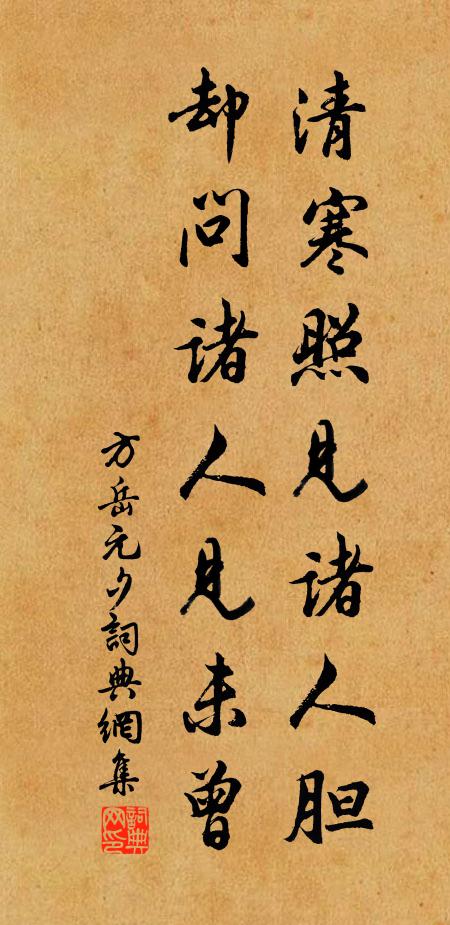 清寒照见诸人胆
却问诸人见未曾
方岳元夕詞典網集
詞典網印